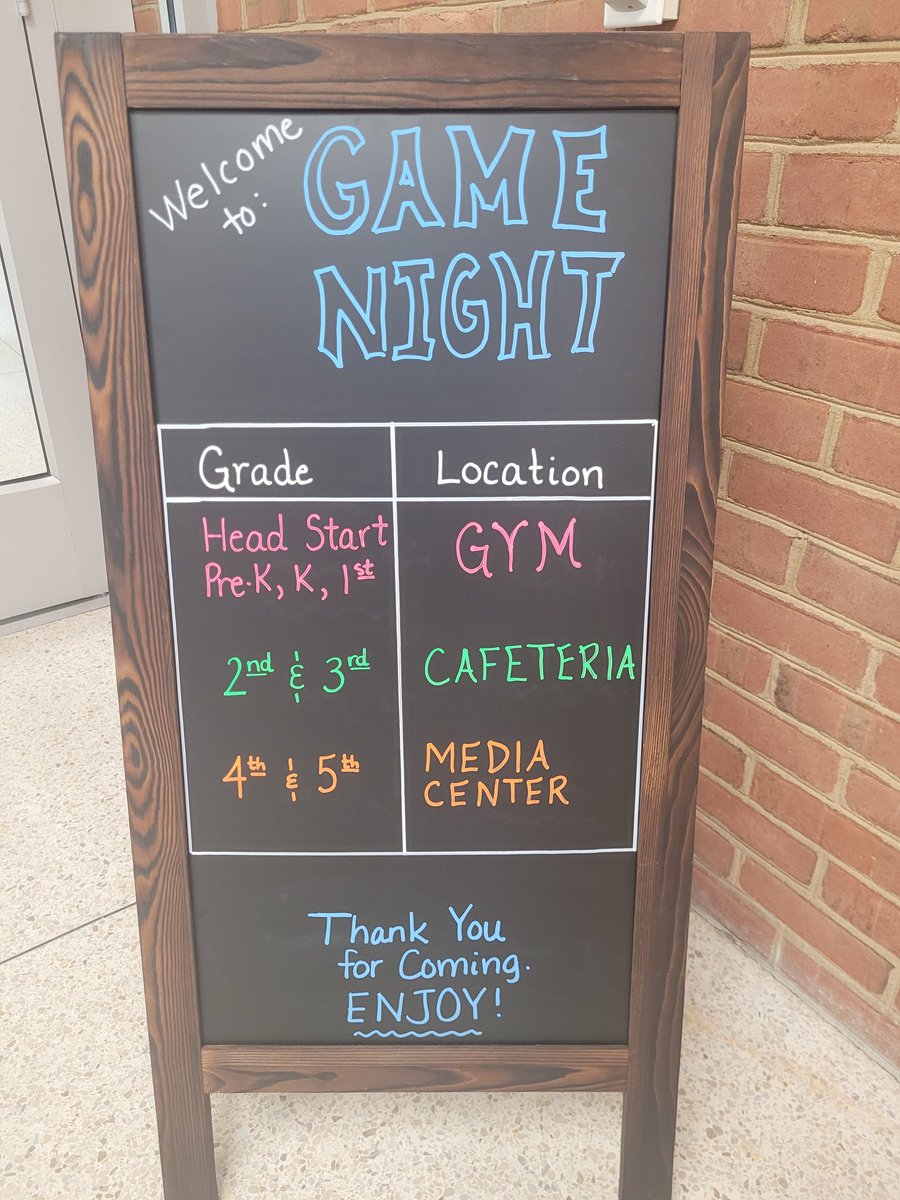 Welcome to:
GAME
NIGHT
Grade Location
Head Start GYM
Pre-K, K, 1st
2nd & 3rd CAFETERIA
4th & 5th MEDIA
CENTER
Thank You
for Coming.
ENJOY!